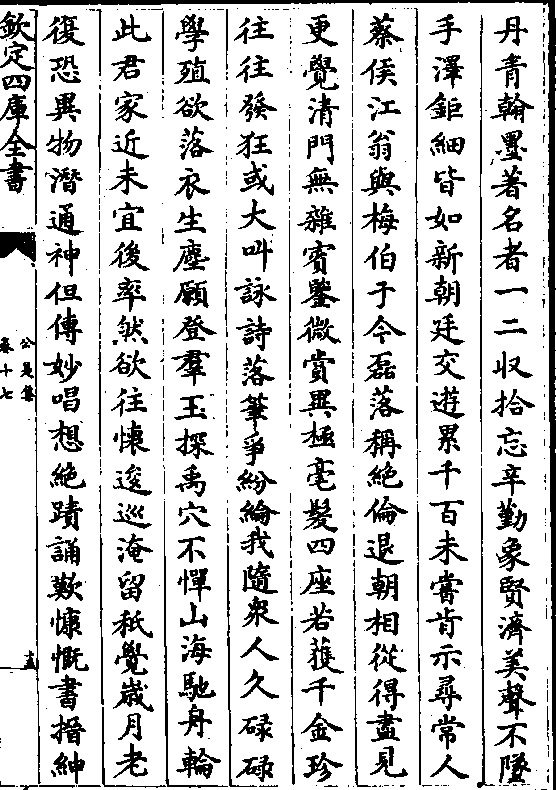 丹青翰墨著名者一二収拾忘辛勤象賢濟美聲不墜
手澤鉅細皆如新朝廷交遊累千百未嘗肯示尋常人
蔡侯江翁與梅伯于今磊落稱絶倫退朝相從得盡見
更覺清門無雜賓鑒微賞異極毫髮四座若蓰千金珍
往往發狂或大叫詠詩落筆爭紛綸我隨衆人久碌碌
學殖欲落衣生塵願登羣玉探禹穴不憚山海馳舟輪
此君家近未宜後率然欲往懐逡巡淹留秖覺嵗月老
復恐異物潛通神但傳妙唱想絶蹟誦歎慷慨書搢紳
欽定四庫全書
公是集
卷十七